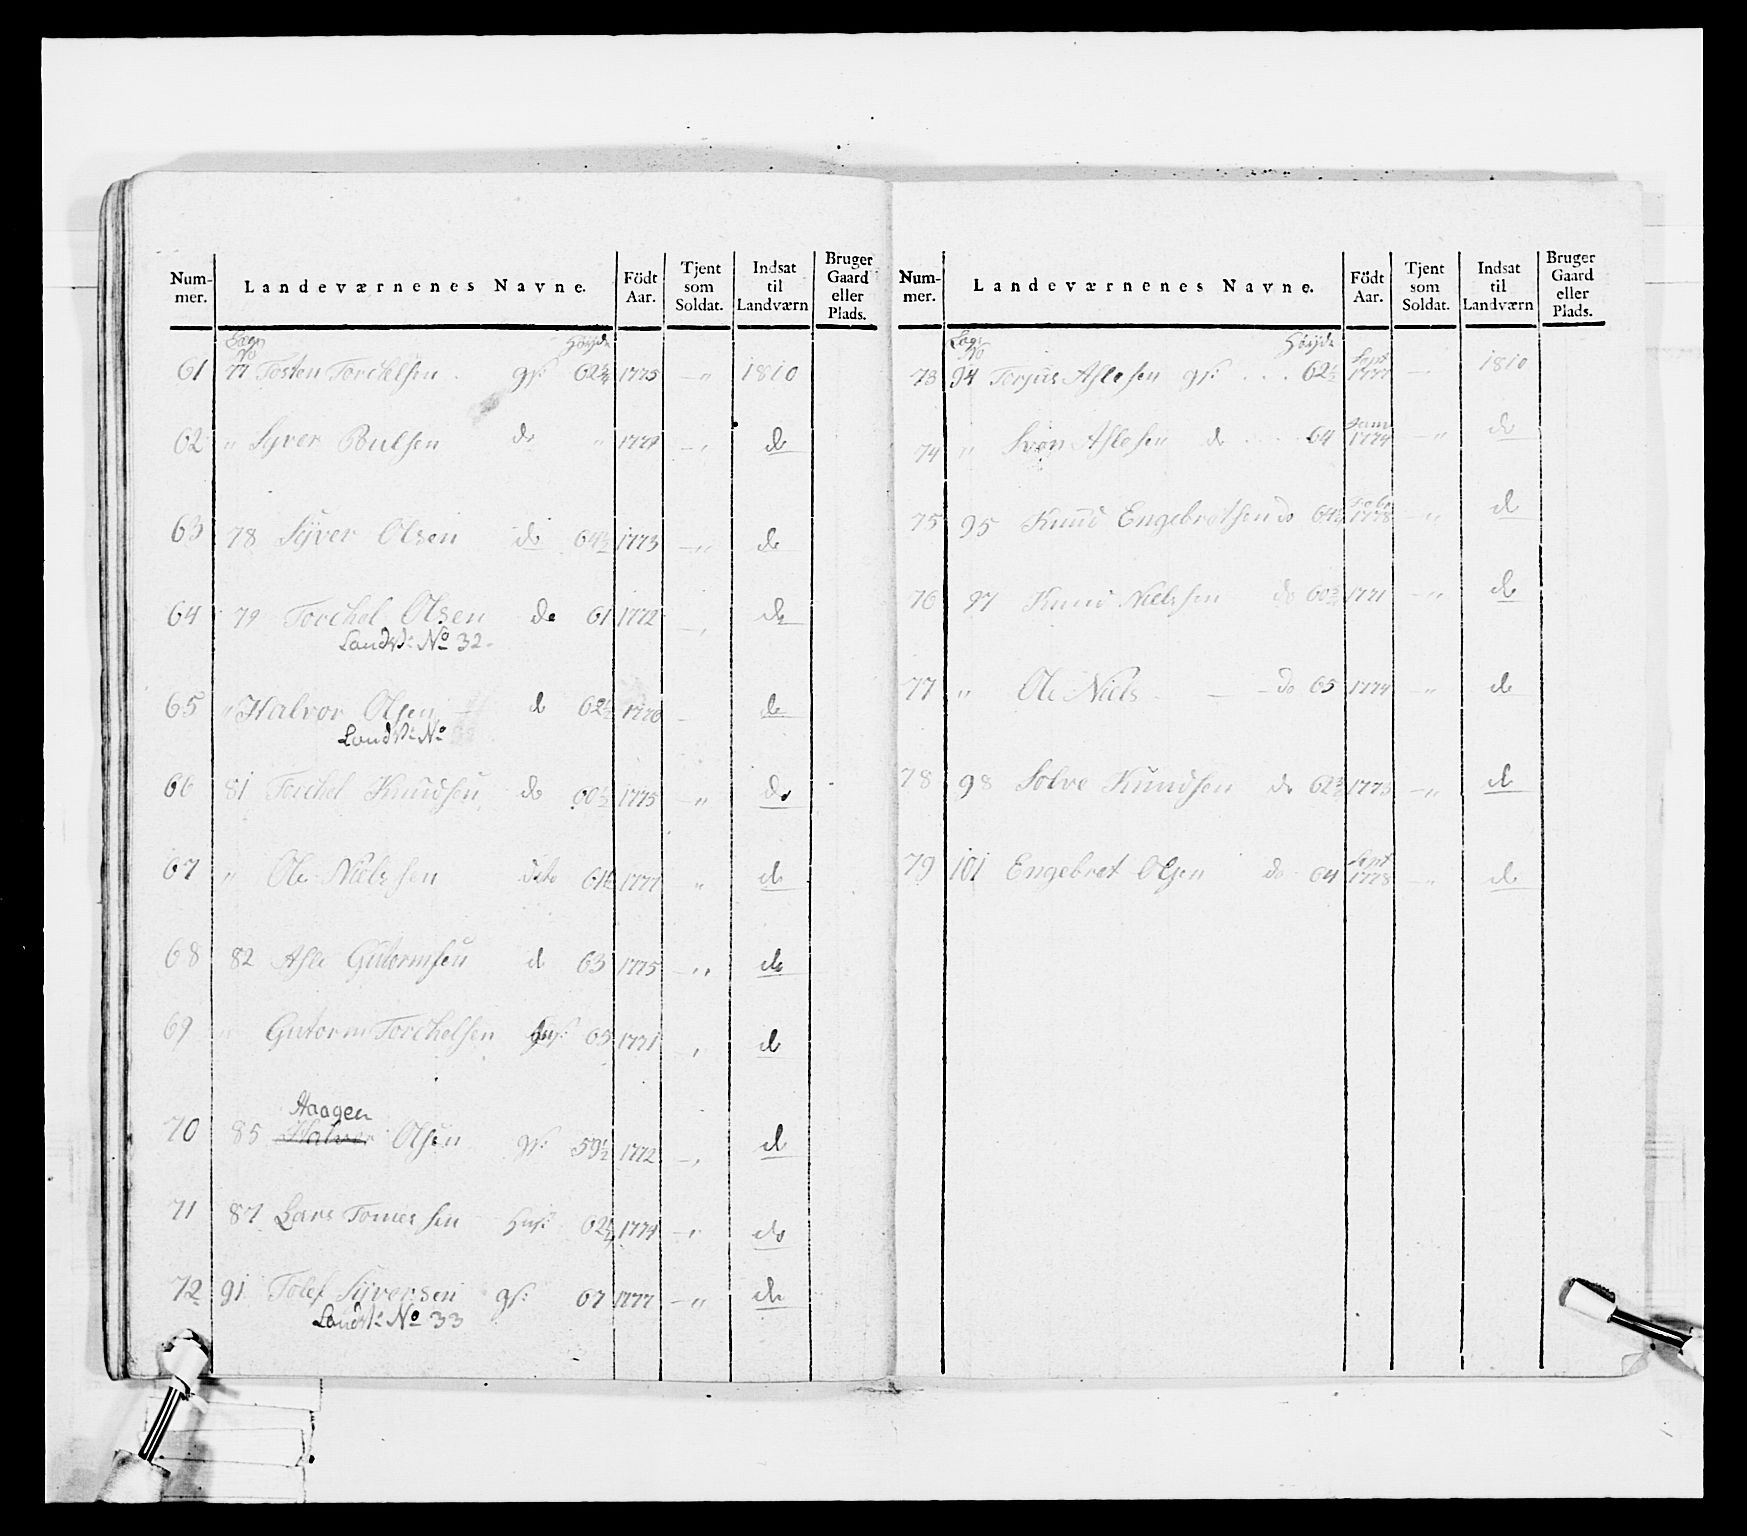 Num-
mer.
Landeværnenes Navne.
Födt
Aar.
Tjent
som
Soldat.
Indsat
til
Landværn
Bruger
Gaard
eller
Plads.
Lægs No Höyde
61 77 Tosten Torchelsen gf: 62¾ 1775 — „ 1810
62 „ Syver Poulsen do „ — „ do
63 78 Syver Olsen do 64½ 1773 — „ do
64 79 Torchel Olsen do 61 1772 — „ do
Landv: No 32.
65 „ Halvor Olsen do 62½ 1776 — do
Landv: No
66 81 Torchel Knudsen do 60½ 1775 — „ do
67 „ Ole Nielssen dito 1777 „ do
68 82 Asle Gutormsen do 63 1775 — „ do
69 Gutorm Torchelsen huf: 65 1771 — „ do
Haagen
70 85 Halvor Olsen gf: 59½ 1772 — „ do
71 87 Lars Tomessen Huf: 1774 — „ do
72 91 Tolef Syversen gf: 67 1777 — „ do
Landv: No 33
Num-
mer.
Landeværnenes Navne.
Födt
Aar.
Tjent
som
Soldat.
Indsat
til
Landværn
Bruger
Gaard
eller
Plads.
Lægs No Höyde
73 94 Torjus Aslesen gf: 62½ Sept 1777 — „ 1810
74 „ Sven Aslesen do 64 1774 — „ do
75 95 Knud Engebretsen do 1778 — „ do
76 97 Knud Nielssen do 60¾ 1771 — „ do
77 „ Ole Niels — do 65 1774 — „ do
78 98 Solve Knudsen do 1775 — „ do
79 101 Engebret Olsen do 64 Sept 1778 — „ do